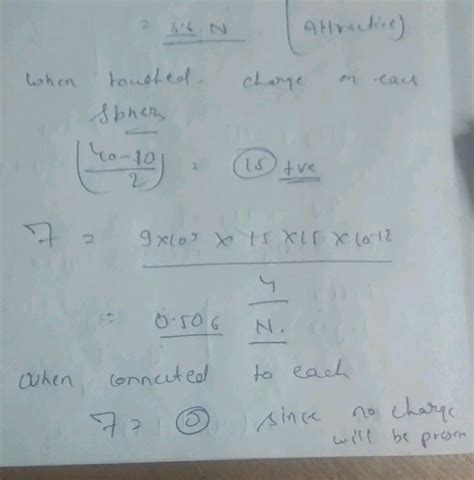 = 3.6 N (Attractive)
when touched. charge on each
Spher
(40-10/2) = (15) +ve
F = 9×10⁹ × 15 × 15 × 10-12
4
= 0.506 N.
When connected to each
F = 0 since no charge
will be presen